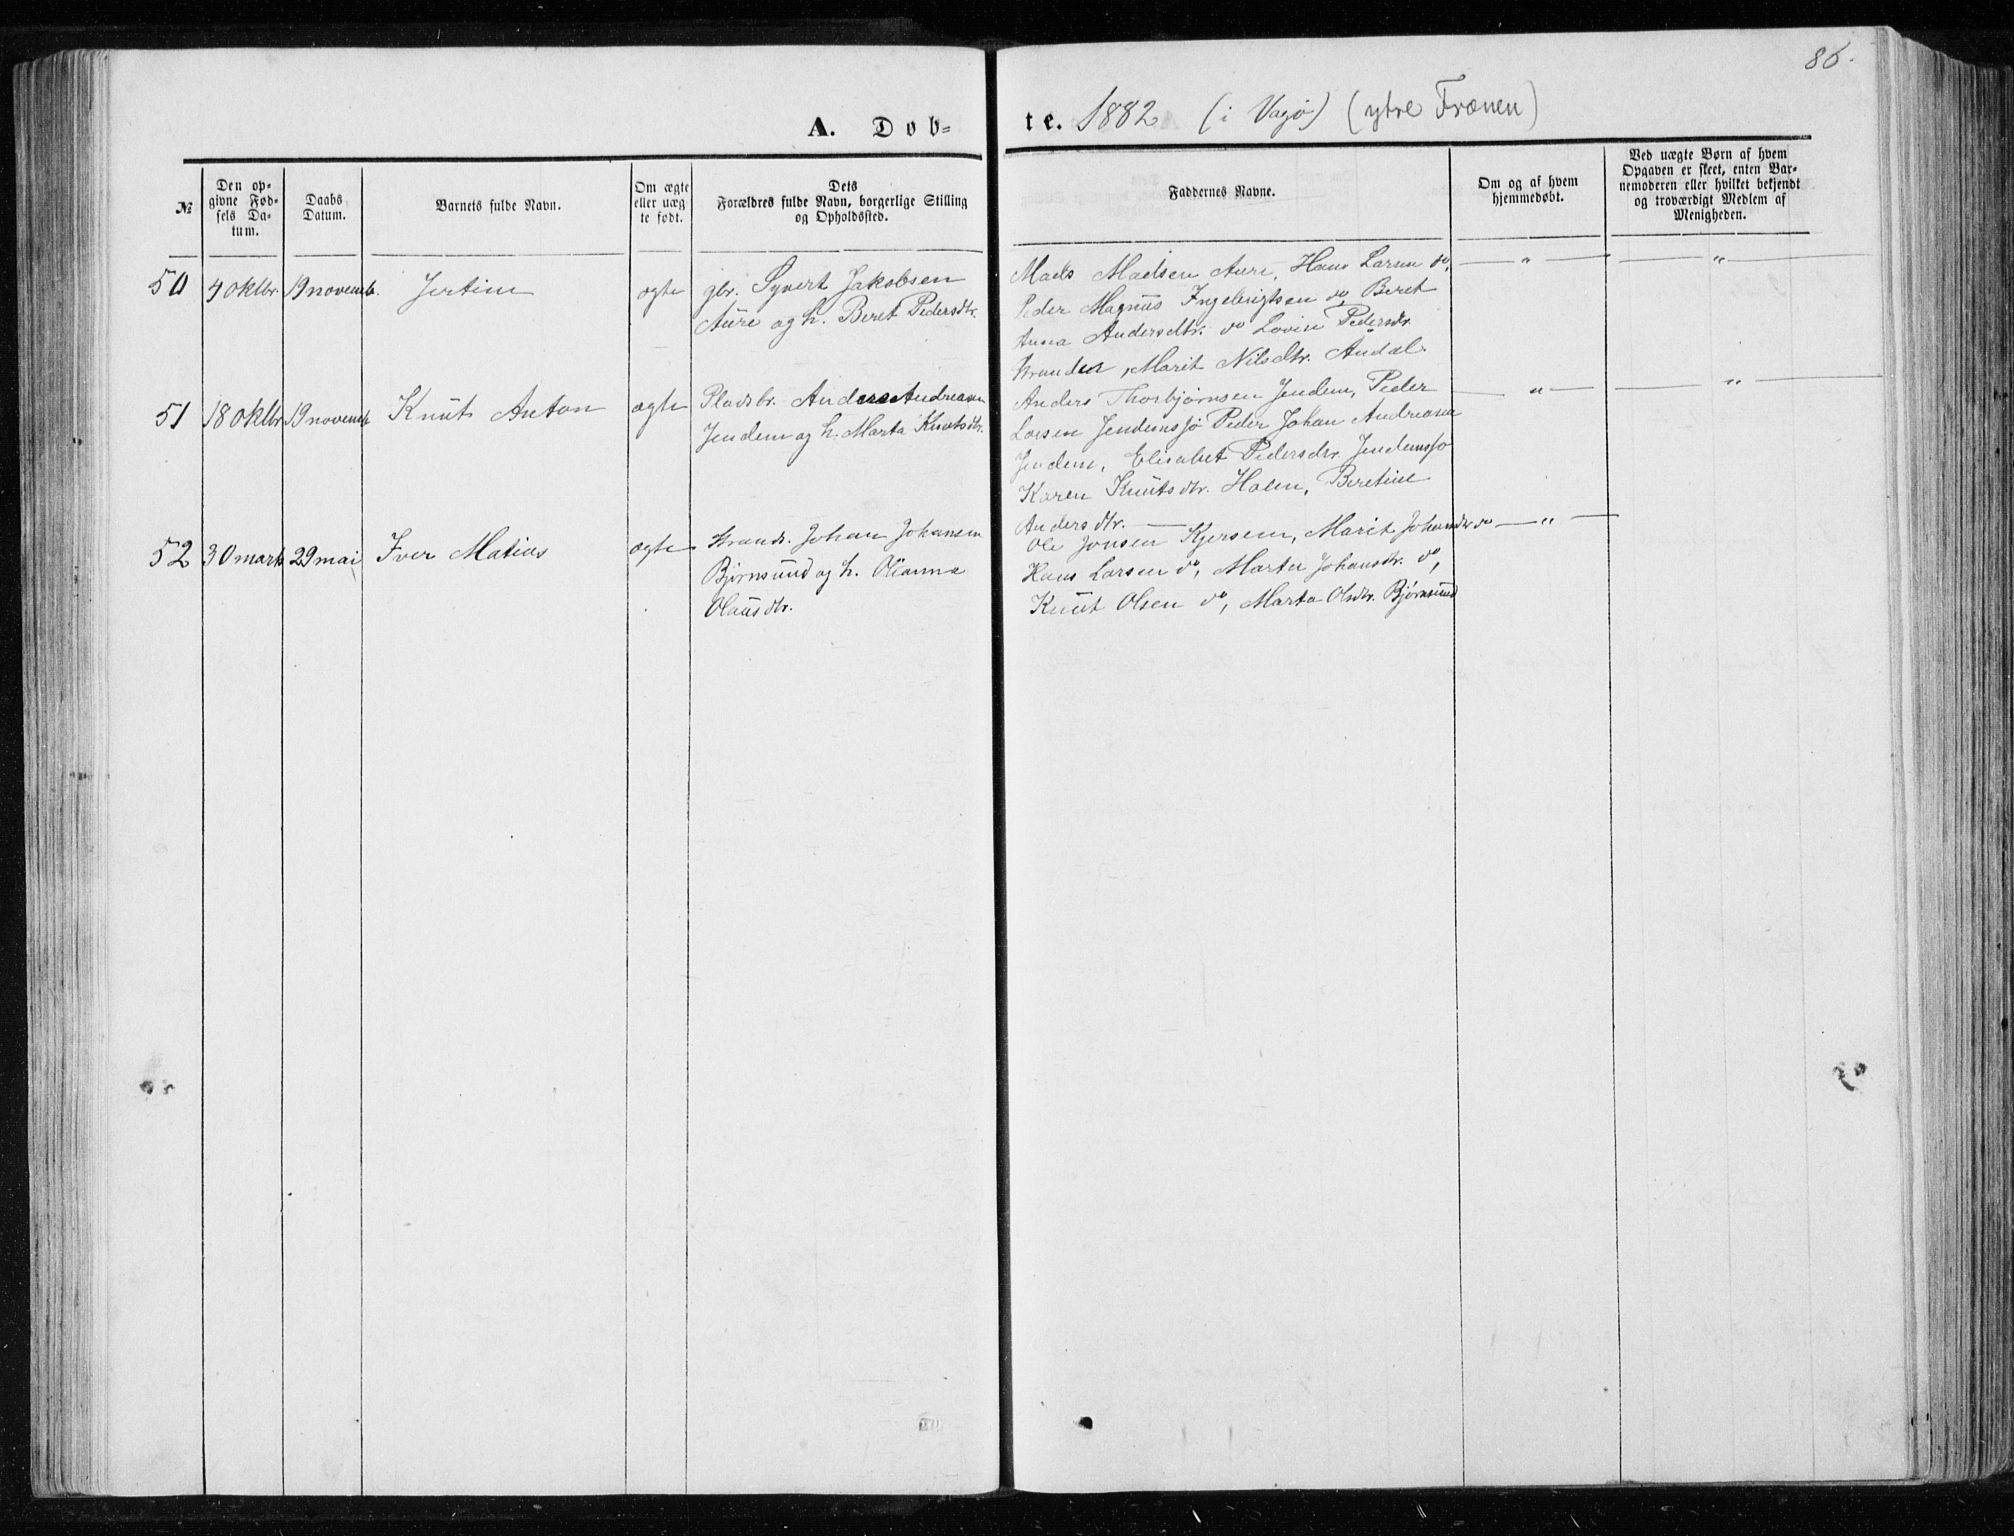 86.
A. Døb-
te. 1882 (i Vagø) (ytre Frænen)
№
Den op-
givne Fød-
sels Da-
tum.
Daabs
Datum.
Barnets fulde Navn.
Om ægte
eller uæg
te født.
Dets
Forældres fulde Navn, borgerlige Stilling
og Opholdssted.
Faddernes Navne.
Om og af hvem
hjemmedøbt.
Ved uægte Børn af hvem
Opgaven er skeet, enten Bar-
nemoderen eller hvilket bekjendt
og troværdigt Medlem af
Menigheden.
50 4 oktbr. 19 novemb. Jertine ægte gbr. Syvert Jakobsen
Aure og h. Beret Pedersdtr.
Mads Madsen Aure, Hans Larsen do,
Peder Magnus Ingebrigtsen do, Beret
Anna Andersdtr. do Lovise Pedersdtr.
Stranden, Marit Nilsdtr. Andal.
— " —
— " —
51 18 oktbr 19 novemb Knut Anton ægte Pladsbr. Anders Andreasen
Jendem og h. Marta Knutsdtr.
Anders Thorbjørnsen Jendem, Peder
Larsen Jendemsjø Peder Johan Andreasen
Jendem, Elisabet Pedersdr. Jendemsjø
Karen Knutsdtr. Holen, Beretine
Andersdtr. —
— " —
— " —
52 30 marts 29 mai Iver Matias ægte Strands. Johan Johansen
Bjørnsund og h. Olianna
Olausdtr.
Ole Jonsen Kjersem, Marit Johansdtr do
Hans Larsen do, Marta Johansdtr. do,
Knut Olsen do, Marta Olsdtr. Bjørnsund
— " —